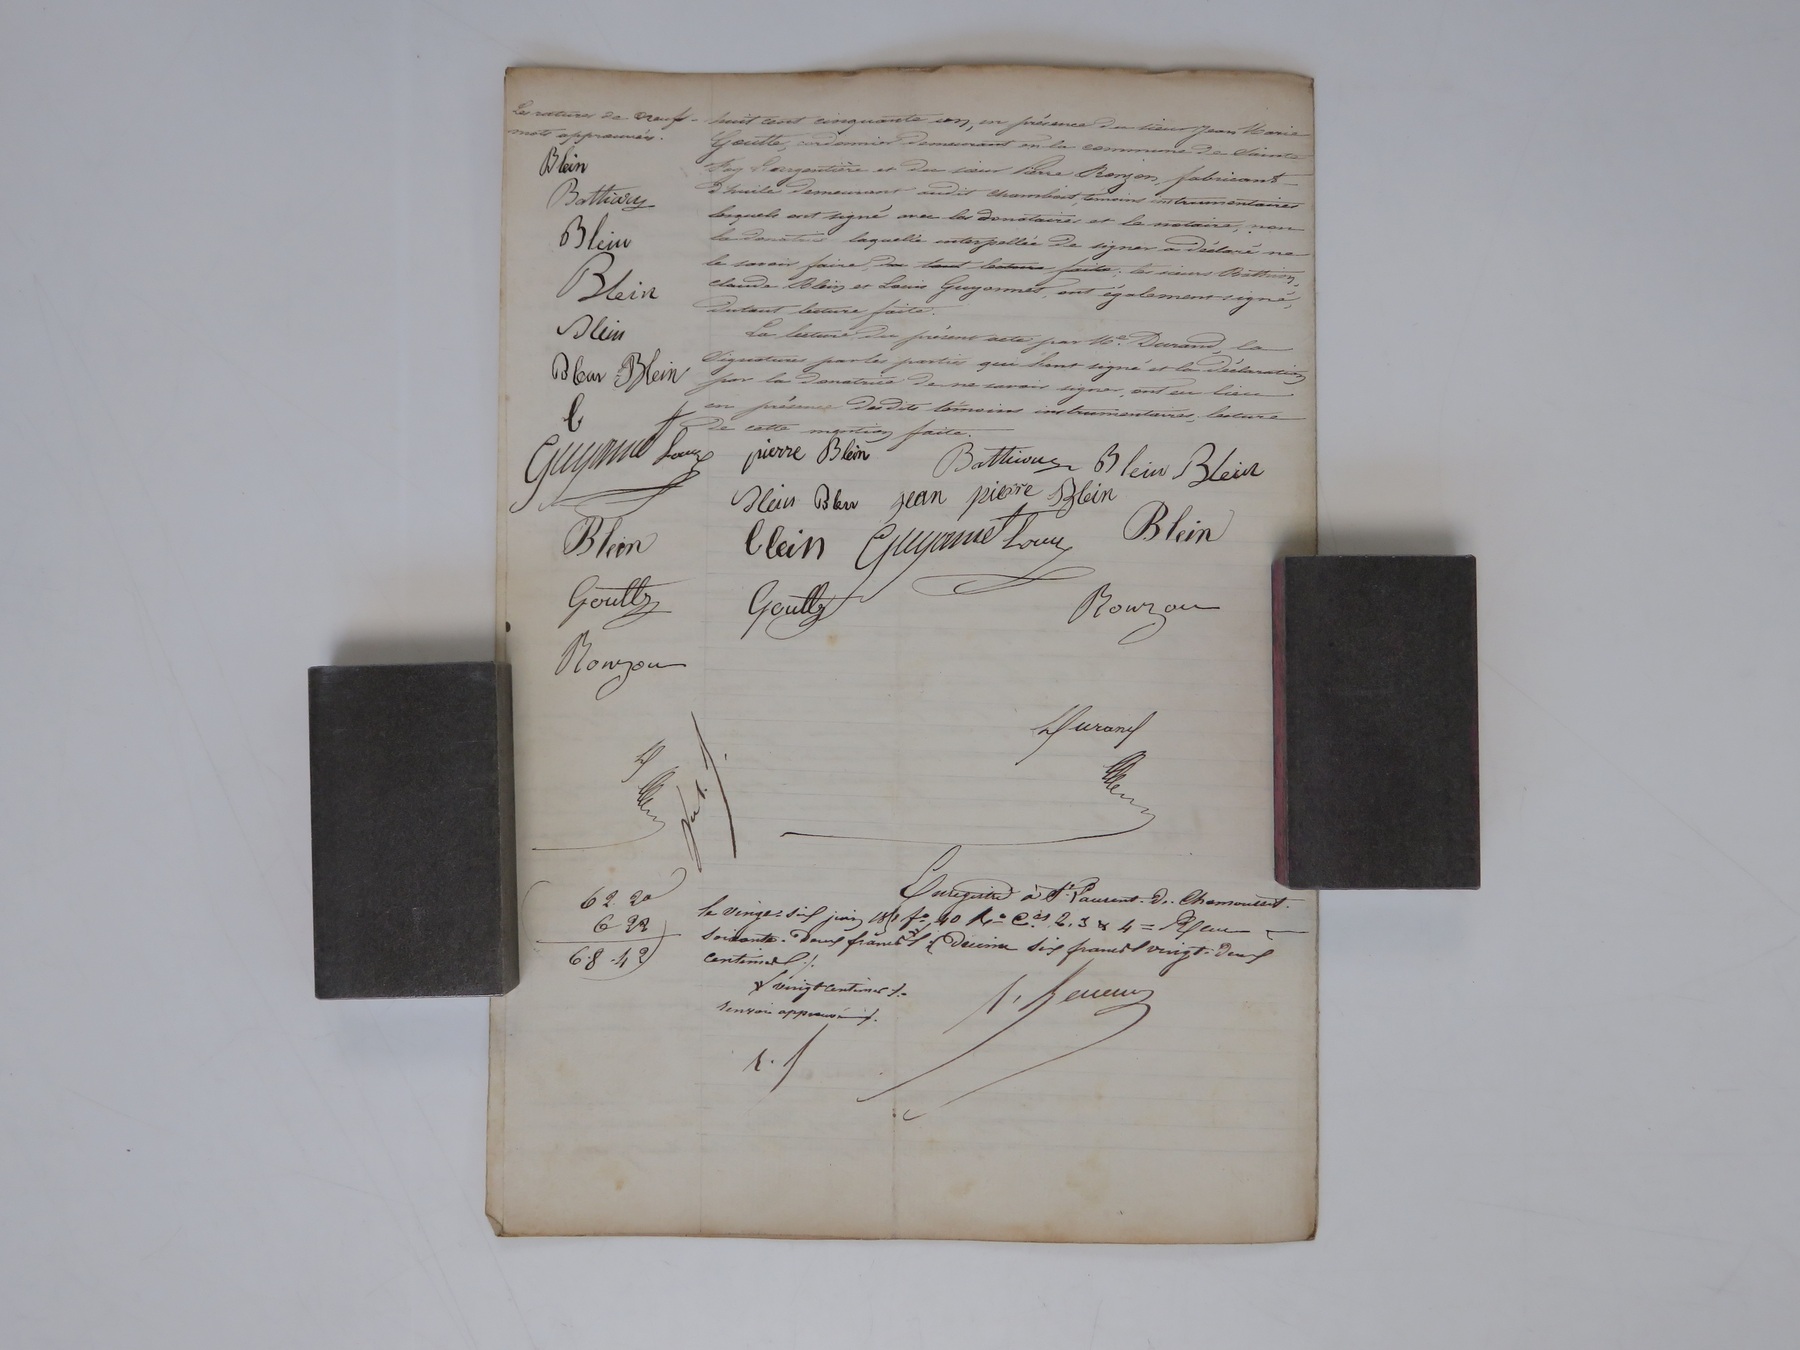 Les ratures de neuf
mots approuvées.
Blein
Battivry
Blein
Blein
Blein
Blein Blein
b
Guyonnet Louis
Blein
Goutte
Ronzon
huit cent cinquante un, en présence du sieur Jean Marie
Goutte, cordonnier demeurant en la commune de Sainte
Foy L'argentière et du sieur Pierre Ronzon, fabricant
d'huile demeurant audit Chambost, témoins instrumentaires
lesquels ont signé avec les donataires et le notaire, non
la donatrice laquelle interpellée de signer a déclaré ne
le savoir faire, du tout lecture faite. les sieurs
Claude Blein et Louis Guyonnet, ont également signé,
autant lecture faite.
La lecture du présent acte par Me. Durand, la
signature par les parties qui l'ont signé et la déclaration
par la donatrice de ne savoir signer, ont eu lieu
en présence desdits témoins instrumentaires, lecture
de cette mention faite.
pierre Blein Blein Blein
Blein Blein jean pierre Blein
blein Guyonnet Louis Blein
Goutte Ronzon
Durand
62 20
6 22
68 42
Enregistré à St. Laurent-de-Chamousset
le vingt-six juin f° 40 R° C.es 2, 3 & 4 = Reçu
soixante-deux francs décime six francs vingt-deux
centimes
& vingt centimes
renvoi approuvé